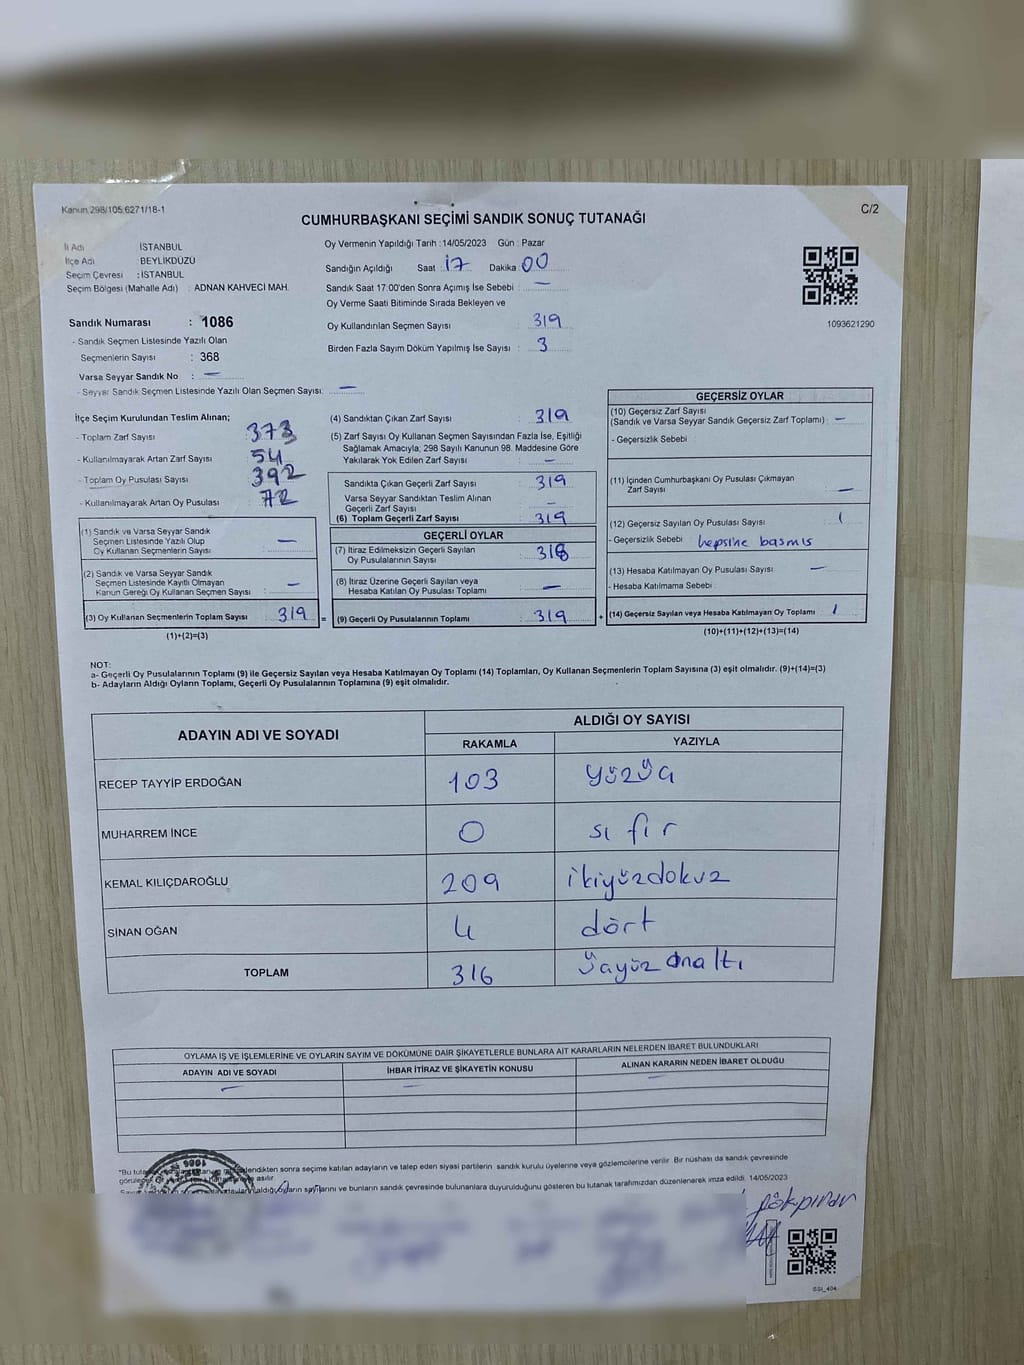 Kanun 298/105 6271/18-1
C/2
CUMHURBAŞKANI SEÇİMİ SANDIK SONUÇ TUTANAĞI
İl Adı İSTANBUL
İlçe Adı : BEYLİKDÜZÜ
Seçim Çevresi : İSTANBUL
Seçim Bölgesi (Mahalle Adı) : ADNAN KAHVECİ MAH.
Sandık Numarası : 1086
- Sandık Seçmen Listesinde Yazılı Olan
Seçmenlerin Sayısı : 368
Varsa Seyyar Sandık No : —
- Seyyar Sandık Seçmen Listesinde Yazılı Olan Seçmen Sayısı: —
Oy Vermenin Yapıldığı Tarih :14/05/2023 Gün : Pazar
Sandığın Açıldığı Saat 17 Dakika 00
Sandık Saat 17:00'den Sonra Açımış İse Sebebi : —
Oy Verme Saati Bitiminde Sırada Bekleyen ve
Oy Kullandırılan Seçmen Sayısı : 319
Birden Fazla Sayım Döküm Yapılmış İse Sayısı : 3
1093621290
İlçe Seçim Kurulundan Teslim Alınan;
- Toplam Zarf Sayısı : 373
- Kullanılmayarak Artan Zarf Sayısı : 54
- Toplam Oy Pusulası Sayısı : 392
- Kullanılmayarak Artan Oy Pusulası : 72
(1) Sandık ve Varsa Seyyar Sandık
Seçmen Listesinde Yazılı Olup
Oy Kullanan Seçmenlerin Sayısı : —
(2) Sandık ve Varsa Seyyar Sandık
Seçmen Listesinde Kayıtlı Olmayan
Kanun Gereği Oy Kullanan Seçmen Sayısı : —
(3) Oy Kullanan Seçmenlerin Toplam Sayısı : 319
(1)+(2)=(3)
(4) Sandıktan Çıkan Zarf Sayısı : 319
(5) Zarf Sayısı Oy Kullanan Seçmen Sayısından Fazla İse, Eşitliği
Sağlamak Amacıyla, 298 Sayılı Kanunun 98. Maddesine Göre
Yakılarak Yok Edilen Zarf Sayısı : —
Sandıkta Çıkan Geçerli Zarf Sayısı : 319
Varsa Seyyar Sandıktan Teslim Alınan
Geçerli Zarf Sayısı : —
(6) Toplam Geçerli Zarf Sayısı : 319
GEÇERLİ OYLAR
(7) İtiraz Edilmeksizin Geçerli Sayılan
Oy Pusulalarının Sayısı : 318
(8) İtiraz Üzerine Geçerli Sayılan veya
Hesaba Katılan Oy Pusulası Toplamı : —
= (9) Geçerli Oy Pusulalarının Toplamı : 319 +
GEÇERSİZ OYLAR
(10) Geçersiz Zarf Sayısı
(Sandık ve Varsa Seyyar Sandık Geçersiz Zarf Toplamı) : —
- Geçersizlik Sebebi
(11) İçinden Cumhurbaşkanı Oy Pusulası Çıkmayan
Zarf Sayısı : —
(12) Geçersiz Sayılan Oy Pusulası Sayısı : 1
- Geçersizlik Sebebi : hepsine basmış
(13) Hesaba Katılmayan Oy Pusulası Sayısı : —
- Hesaba Katılmama Sebebi :
(14) Geçersiz Sayılan veya Hesaba Katılmayan Oy Toplamı : 1
(10)+(11)+(12)+(13)=(14)
NOT:
a- Geçerli Oy Pusulalarının Toplamı (9) ile Geçersiz Sayılan veya Hesaba Katılmayan Oy Toplamı (14) Toplamları, Oy Kullanan Seçmenlerin Toplam Sayısına (3) eşit olmalıdır. (9)+(14)=(3)
b- Adayların Aldığı Oyların Toplamı, Geçerli Oy Pusulalarının Toplamına (9) eşit olmalıdır.
ADAYIN ADI VE SOYADI ALDIĞI OY SAYISI
RAKAMLA YAZIYLA
RECEP TAYYİP ERDOĞAN 103 yüzüç
MUHARREM İNCE 0 sıfır
KEMAL KILIÇDAROĞLU 209 ikiyüzdokuz
SİNAN OĞAN 4 dört
TOPLAM 316 üçyüz onaltı
OYLAMA İŞ VE İŞLEMLERİNE VE OYLARIN SAYIM VE DÖKÜMÜNE DAİR ŞİKAYETLERLE BUNLARA AİT KARARLARIN NELERDEN İBARET BULUNDUKLARI
ADAYIN ADI VE SOYADI İHBAR İTİRAZ VE ŞİKAYETİN KONUSU ALINAN KARARIN NEDEN İBARET OLDUĞU
— — —
*Bu sonra seçime katılan adayların ve talep eden siyasi partilerin sandık kurulu üyelerine veya gözlemcilerine verilir. Bir nüshası da sandık çevresinde
asılır.
aldığı oyların sayılarını ve bunların sandık çevresinde bulunanlara duyurulduğunu gösteren bu tutanak tarafımızdan düzenlenerek imza edildi. 14/05/2023
1086
SSI_404